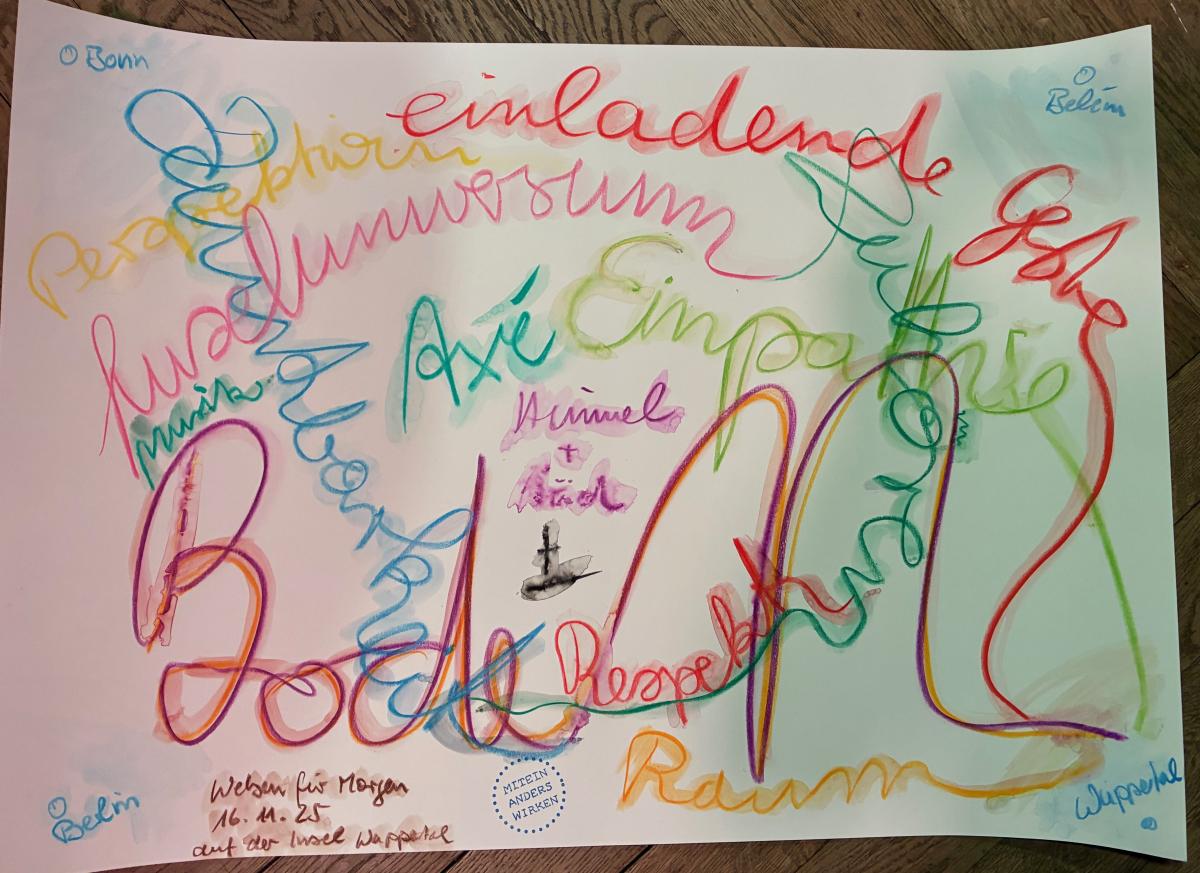 Bonn
Belém
einladende
Perspektiven
Inseluniversum
Geste
Axé
Empathie
Musik
Himmel
+
Boden
Respekt
Raum
Weben für Morgen
16.11.25
auf der Insel Wuppertal
MITEIN
ANDERS
WIRKEN
Berlin
Wuppertal